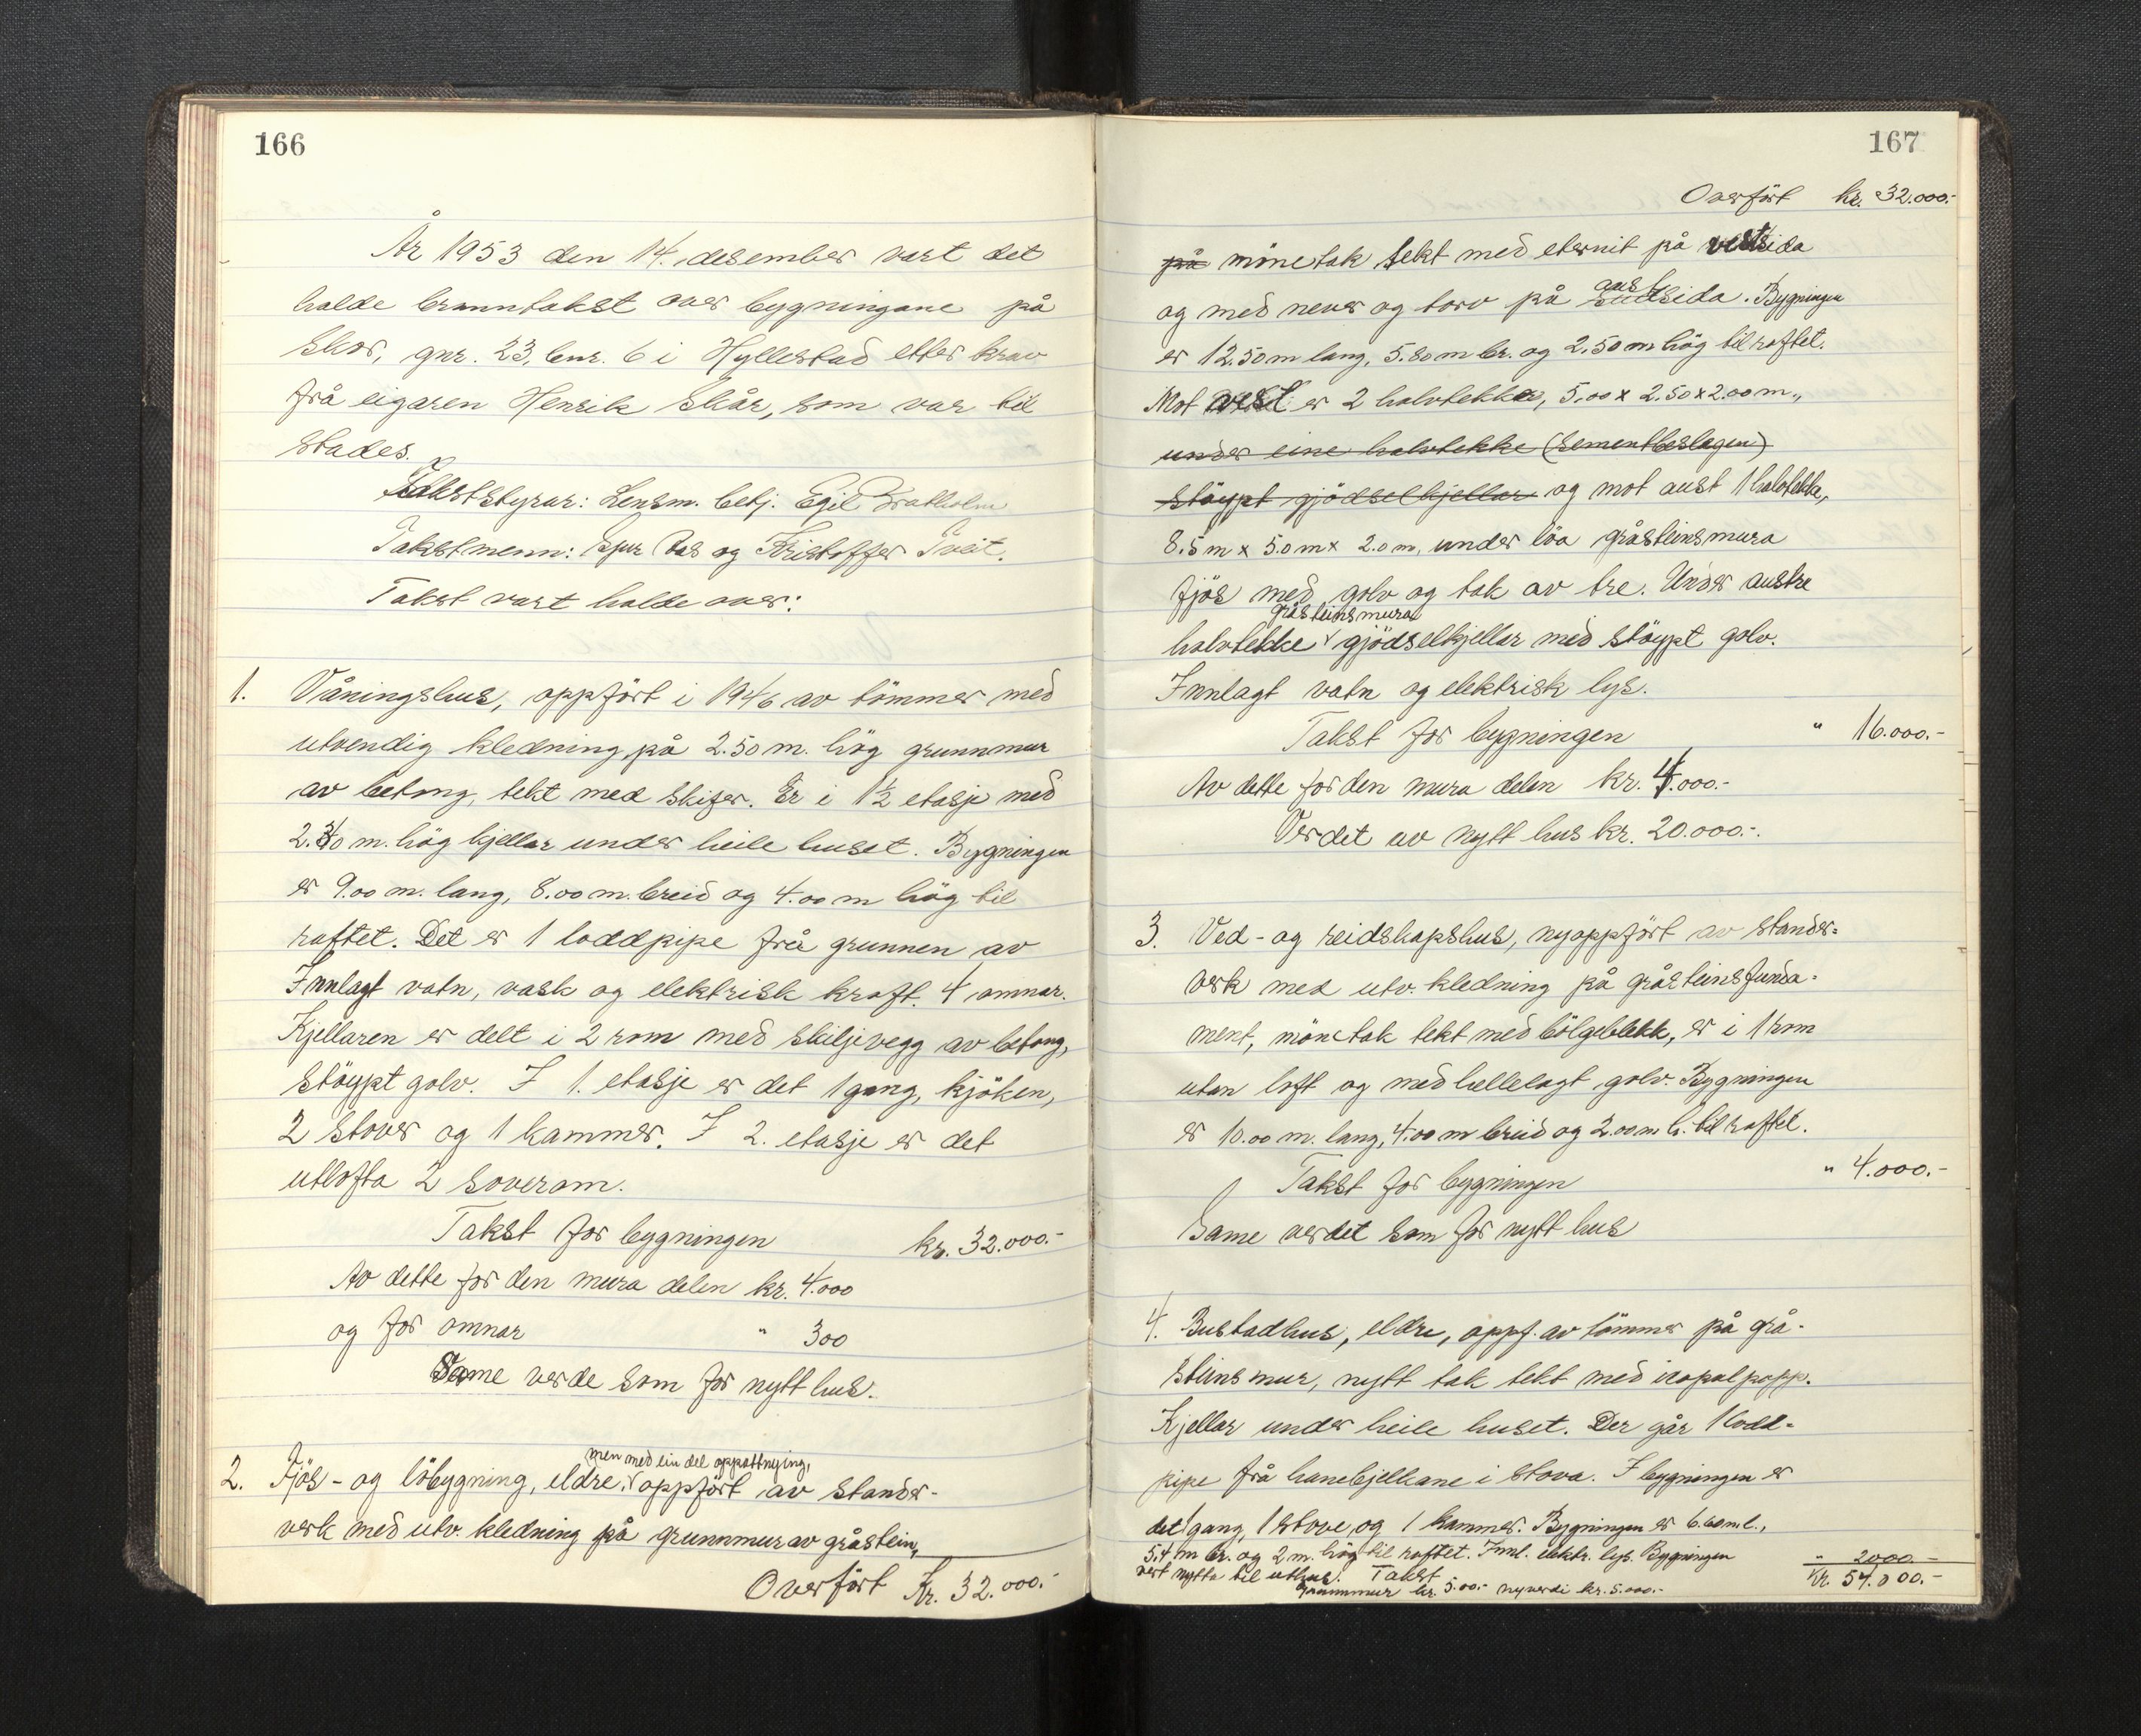 166
År 1953 den 14. desember vart det
halde branntakst over bygningane på
Skor, gnr. 23, bnr. 6 i Hyllestad etter krav
frå eigaren Henrik Skår, som var til
stades.
Takststyrar: Lensm. betj. Egil
Takstmenn: og Kristoffer Tveit.
Takst vart halde over:
1. Våningshus, oppført i 1946 av tömmer med
utvendig kledning på 2.50 m. hög grunnmur
av betong, tekt med skifer. Er i 1½ etasje med
2.30 m. hög kjellar under heile huset. Bygningen
er 9.00 m. lang, 8.00 m. breid og 4.00 m hög til
raftet. Det er 1 loddpipe frå grunnen av
Innlagt vatn, vask og elektrisk kraft. 4 omnar.
Kjellaren er delt i 2 rom med skiljevegg av betong,
stöypt golv. I 1. etasje er det 1 gang, kjöken,
2 stover og 1 kammer. I 2. etasje er det
utlofta 2 soverom.
Takst for bygningen kr. 32.000.-
Av dette for den mura delen kr. 4.000
og for omnar " 300
Same verde som for nytt hus.
men med ein del oppattnying,
2. Fjös- og löbygning, eldre, oppfört av stander-
verk med utv. kledning på grunnmur av gråstein,
Overfört Kr. 32.000.-
167
Overfört kr. 32.000.-
på mönetak tekt med eternit på vestsida
aust
og med never og torv på sudsida. Bygningen
er 12.50 m lang, 5.80 m br. og 2.50 m hög til raftet.
Mot vest er 2 halvtekka, 5.00 x 2.50 x 2.00 m.,
under eine halvtekke (sementbeslegen)
stöypt gjödselkjellar og mot aust 1 halvtekke,
8.5 m x 5.0 m x 2.0 m, under löa gråsteinsmura
fjös med golv og tak av tre. Under austre
gråsteinsmura
halvtekke gjödselkjellar med stöypt golv.
Innlagt vatn og elektrisk lys.
Takst for bygningen " 16.000.-
Av dette for den mura delen kr. 4.000.-
Verdet av nytt hus kr. 20.000.-.
3. Ved- og reidskapshus, nyoppfört av stander-
verk med utv. kledning på gråsteinsfunda-
ment, mönetak tekt med bölgeblekk, er i 1 rom
utan loft og med hellelagt golv. Bygningen
er 10.00 m. lang, 4.00 m breid og 2.00 m h. til raftet.
Takst for bygningen " 4.000.-
Same verdet som for nytt hus
4. Bustadhus, eldre, oppf. av tömmer på grå-
steinsmur, nytt tak tekt med icopalpapp.
Kjellar under heile huset. Der går 1 lodd-
pipe frå hanebjelkane i stova. I bygningen er
det 1 gang, 1 stove og 1 kammer. Bygningen er 6.60 m l.,
5.4 m br. og 2 m. hög til raftet. Innl. elektr. lys. Bygningen
vert nytta til uthus. Takst " 2000.-
Grunnmur kr. 500.- nyverdi kr. 5.000.- Kr. 54.000.-